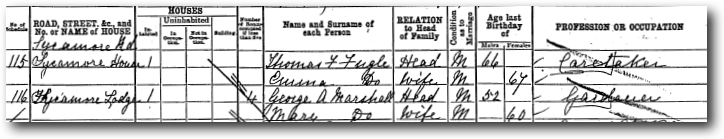 No. of Schedule ROAD, STREET, &c., and No. or NAME of HOUSE HOUSES In-habited Uninhabited In Occu-pation. Not in Occu-pation. Building Number of Rooms occupied if less than five Name and Surname of each Person RELATION to Head of Family Condition as to Marriage Age last Birthday of Males Females PROFESSION OR OCCUPATION
Sycamore Rd
115 Sycamore House 1 Thomas F Fugle Head M 66 Caretaker
Emma Do Wife M 67
116 Sycamore Lodge 1 4 George A Marshall Head M 52 Gardener
Mary Do Wife M 60